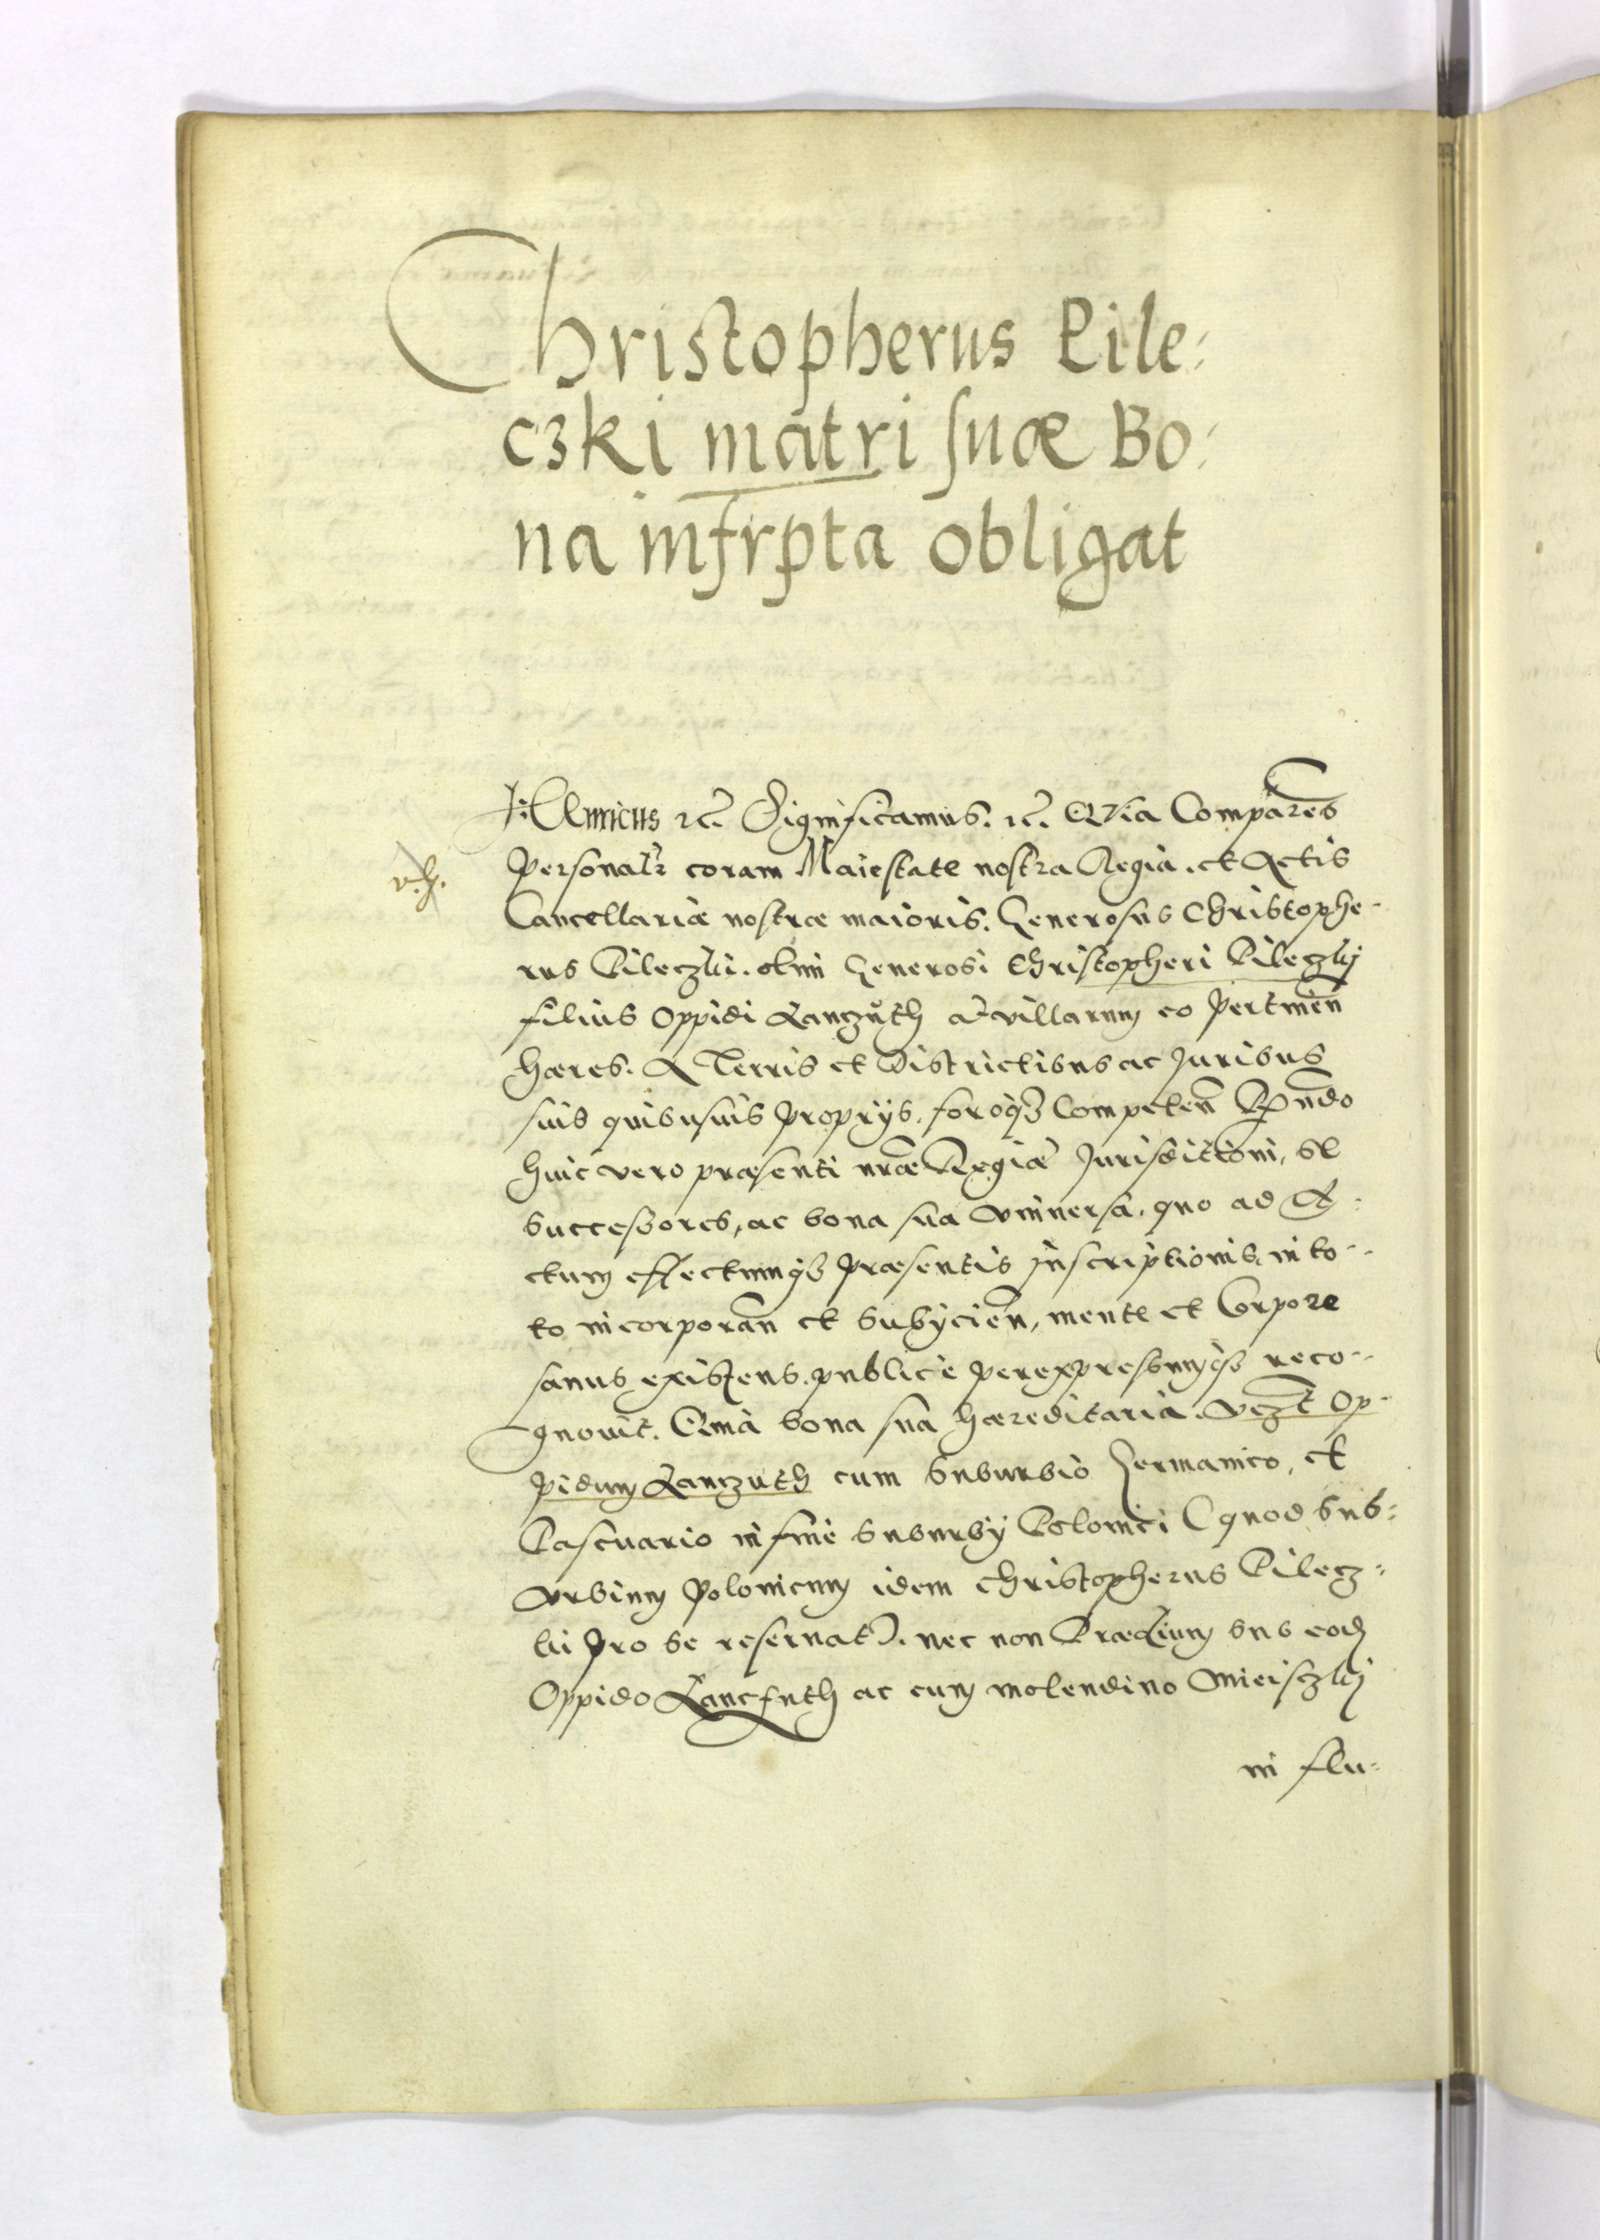 Christopherus Pile-
czki matri suæ Bo-
na infrpta obligat
Hænricus etc. Significamus. etc. Quia Comparens
Personalr coram Maiestate nostra Regia. et Actis
Cancellariæ nostræ maioris. Generosus Christophe-
rus Pileczki. olim Generosi Christopheri Pileczkij
filius Oppidi Lanczuth ac villarum eo pertinen
hæres. A Terris et Districtibus ac Juribus
suis quibusuis proprijs, foroque Competen Rndo
huic vero præsenti nræ Regiæ Jurisdictioni, se
successores, ac bona sua vniuersa, quo ad A-
ctum effectumque præsentis Inscriptionis, in to-
to incorporan et subijcien, mente et Corpore
sanus existens. publice perexpressumque reco-
gnouit. Quia bona sua hæreditaria. vczt Op-
pidum Lanczuth cum Suburbio Germanico, et
Pascuario in fine Suburbij Polonici (quod Sub-
vrbium Polonicum idem Christopherus Pilecz-
ki pro se reseruat). nec non Prædium sub eod
Oppido Lanczuth ac cum molendino Mieisczkij
in flu-